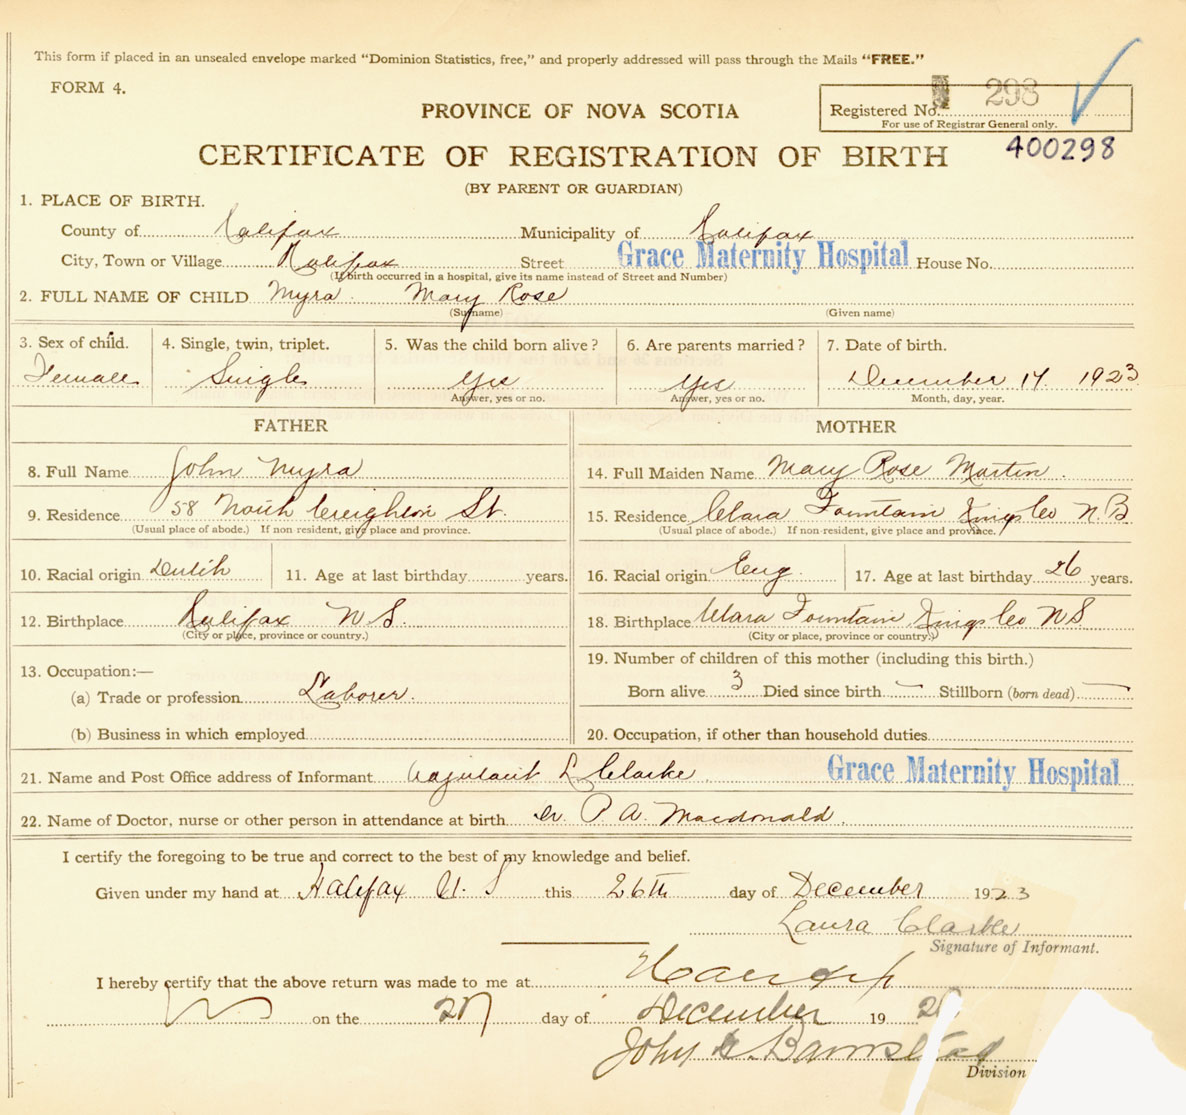 This form if placed in an unsealed envelope marked "Dominion Statistics, free," and properly addressed will pass through the Mails "FREE."
FORM 4.
PROVINCE OF NOVA SCOTIA
Registered No. 298
For use of Registrar General only.
CERTIFICATE OF REGISTRATION OF BIRTH
400298
(BY PARENT OR GUARDIAN)
1. PLACE OF BIRTH.
County of Halifax Municipality of Halifax
City, Town or Village Halifax Street Grace Maternity Hospital House No.
(If birth occurred in a hospital, give its name instead of Street and Number)
2. FULL NAME OF CHILD Myra Mary Rose
(Surname) (Given name)
3. Sex of child. 4. Single, twin, triplet. 5. Was the child born alive? 6. Are parents married? 7. Date of birth.
Female Single Yes Yes December 17 1923
Answer, yes or no. Answer, yes or no. Month, day, year.
FATHER MOTHER
8. Full Name John Myra 14. Full Maiden Name Mary Rose Martin
9. Residence 58 North Creighton St. 15. Residence Clara Fountain Kings Co N.B
(Usual place of abode.) If non resident, give place and province. (Usual place of abode.) If non-resident, give place and province.
10. Racial origin Dutch 11. Age at last birthday years. 16. Racial origin Eng. 17. Age at last birthday 26 years.
12. Birthplace Halifax N S. 18. Birthplace Clara Fountain Kings Co N S.
(City or place, province or country.) (City or place, province or country.)
13. Occupation:— 19. Number of children of this mother (including this birth.)
(a) Trade or profession Laborer. Born alive 3 Died since birth — Stillborn (born dead) —
(b) Business in which employed 20. Occupation, if other than household duties
21. Name and Post Office address of Informant Adjutant L Clarke Grace Maternity Hospital
22. Name of Doctor, nurse or other person in attendance at birth Dr. P. A. Macdonald.
I certify the foregoing to be true and correct to the best of my knowledge and belief.
Given under my hand at Halifax N. S this 26th day of December 1923
Laura Clarke
Signature of Informant.
I hereby certify that the above return was made to me at Halifax
on the 27 day of December 19 2
John Barnstead
Division